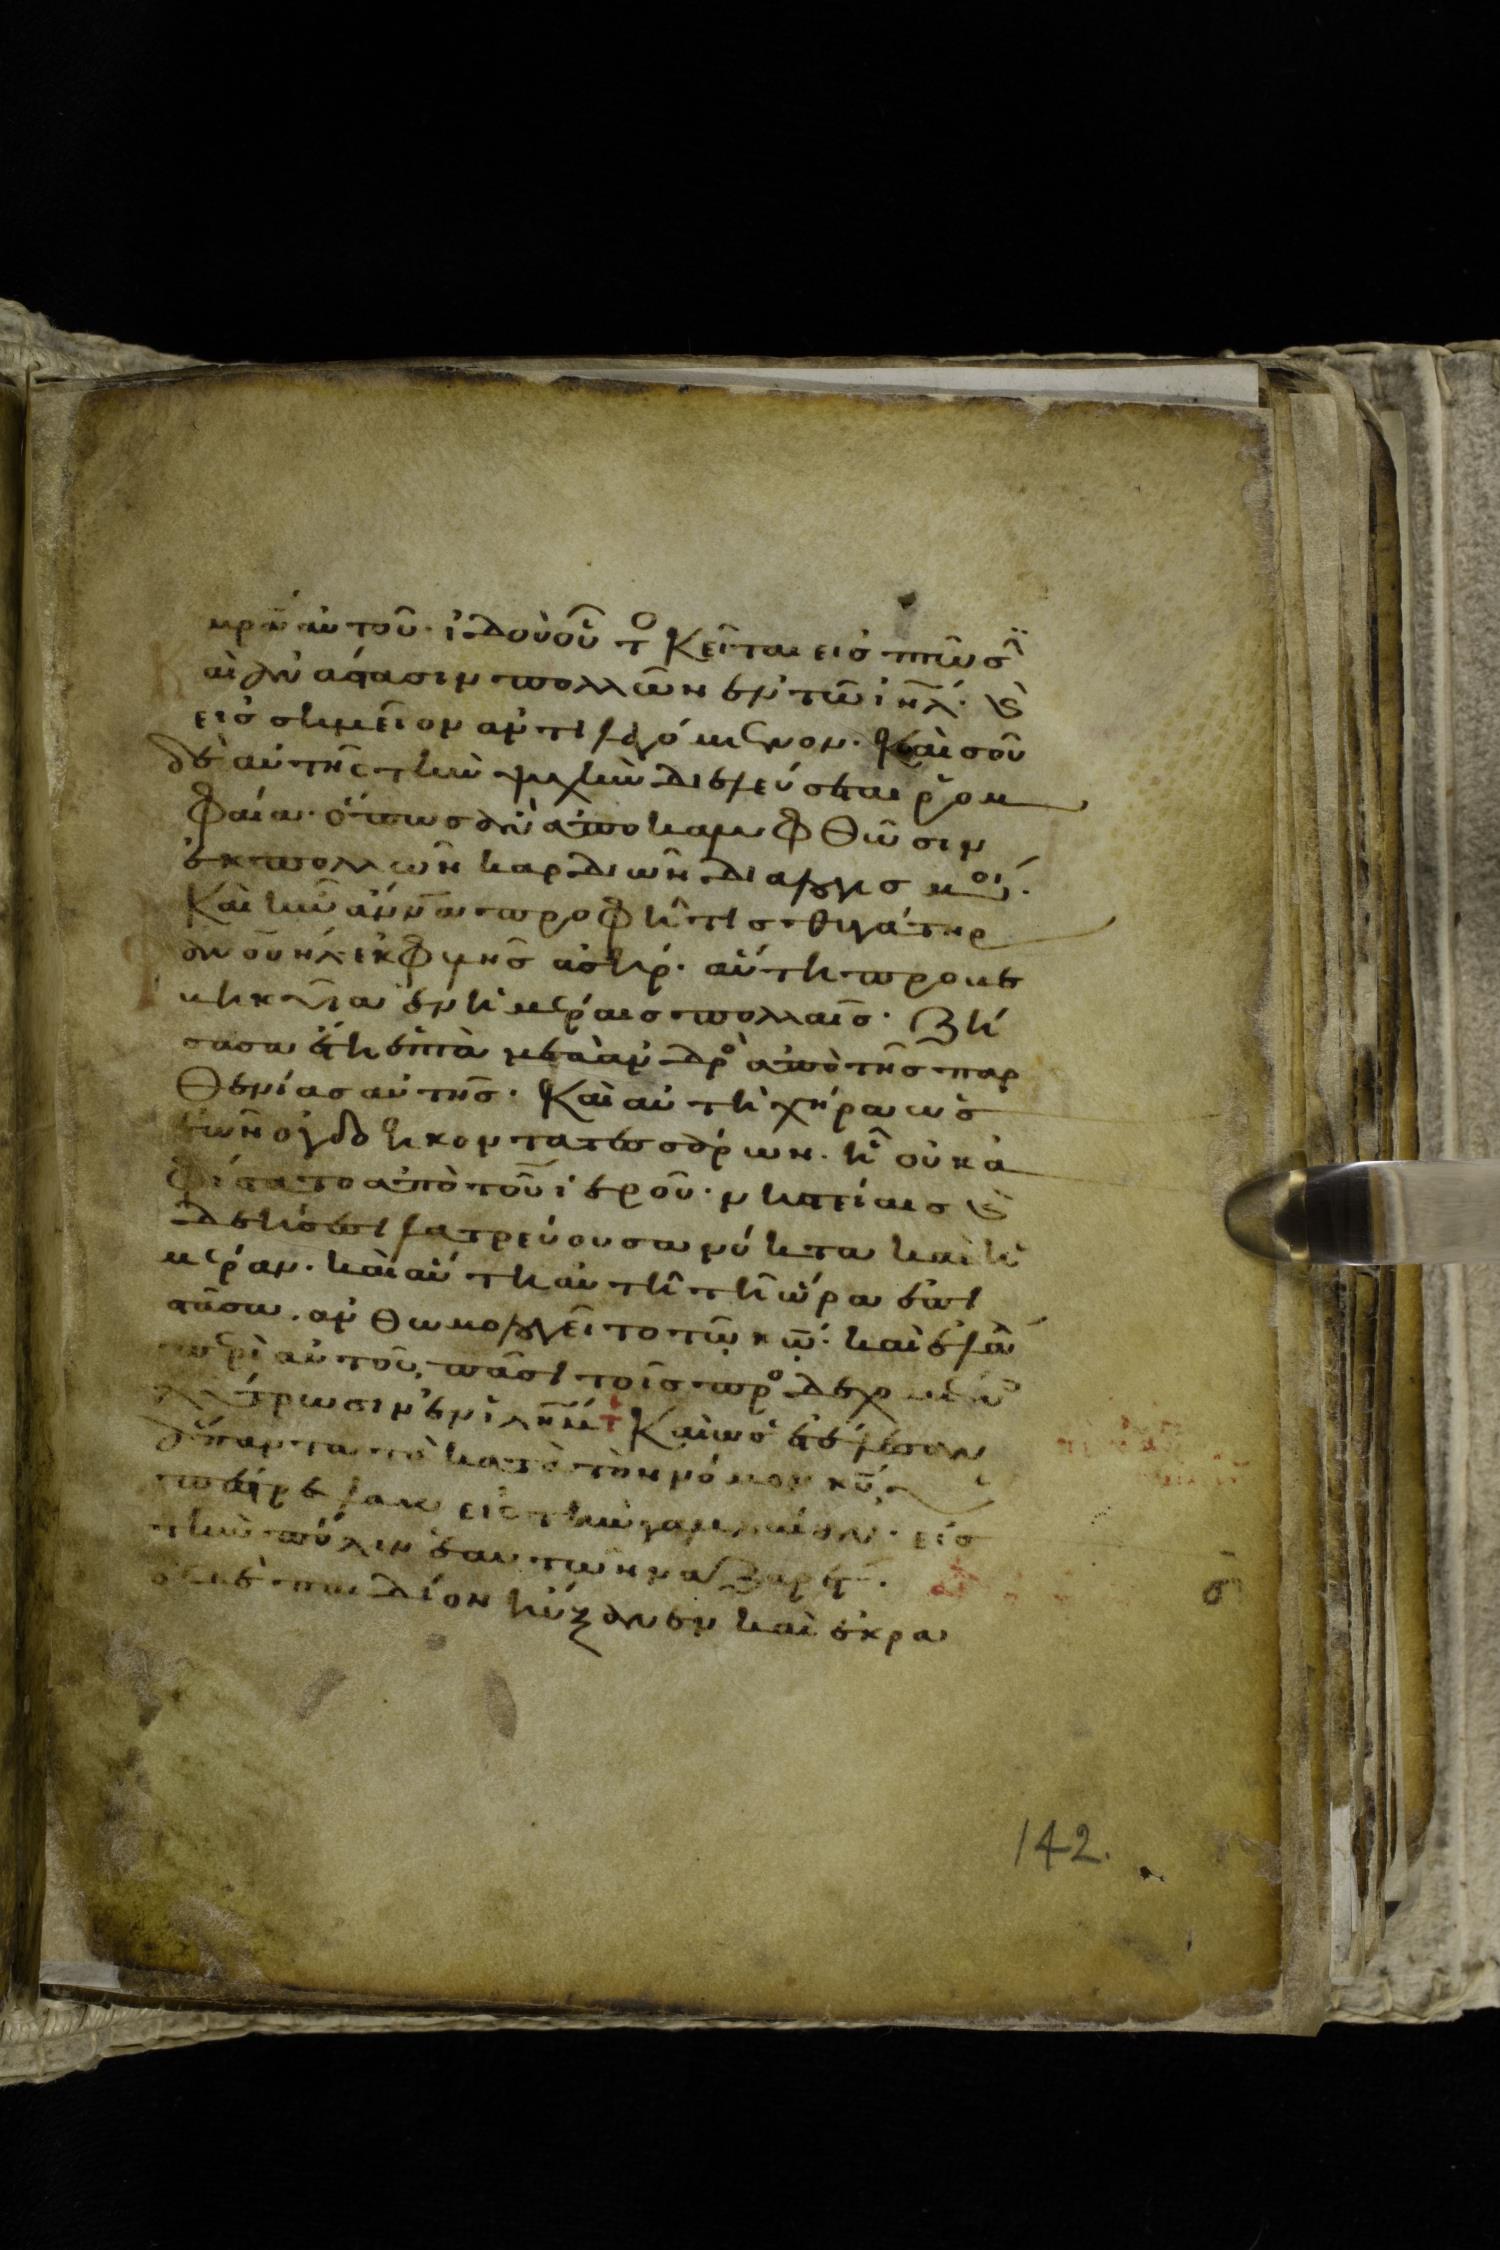 μρ̅α αὐτοῦ· ἰδοὺ οὗτο Κεῖται εἰς πτῶσϊ
αὶ ἀνάστασιν πολλῶν ἐν τῶ ἰη̅λ· κ̀
εἰς σημεῖον ἀντιλεγόμενον· Καὶ σοῦ
δὲ αὐτῆς τὴν ψυχὴν διελεύσεται ῥομ
φαία· ὅπως ἂν ἀποκαλυφθῶσιν
ἐκ πολλῶν καρδιῶν διαλογισμοί·
Καὶ ἦν ἄννα προφῆτις θυγάτηρ
φανουὴλ ἐκ φυλῆς ἀσήρ· αὕτη προβε
βηκυῖα ἐν ἡμέραις πολλαῖς· ζή
σασα ἔτη ἑπτὰ μετὰ ἀνδρὸ ἀπὸ τῆς παρ
θενίας αὐτῆς· Καὶ αὐτὴ χήρα ὡς
ἐτῶν ὀγδοήκοντα τεσσάρων· ἣ οὐκ ἀ
φίστατο ἀπὸ τοῦ ἱεροῦ· νηστείαις κ̀
δεήσεσι λατρεύουσα νύκτα καὶ ἡ
μέραν· καὶ αὕτη αὐτῆ τῆ ὥρα ἐπι
στᾶσα· ἀνθωμολογεῖτο τῶ κω̅· καὶ ἐλά
περὶ αὐτοῦ, πᾶσι τοῖς προσδεχομέν
λύτρωσιν ἐν ἰλη̅μ Καὶ ὡς ἐτέλεσαν
ἅπαντα τὰ κατὰ τὸν νόμον κυ̅·
ὑπέστρεψαν εἰς τὴν γαλιλαίαν· εἰς
τὴν πόλιν ἑαυτῶν ναζαρέτ·
τὸ δὲ παιδίον ηὔξανεν καὶ ἐκρα
142.